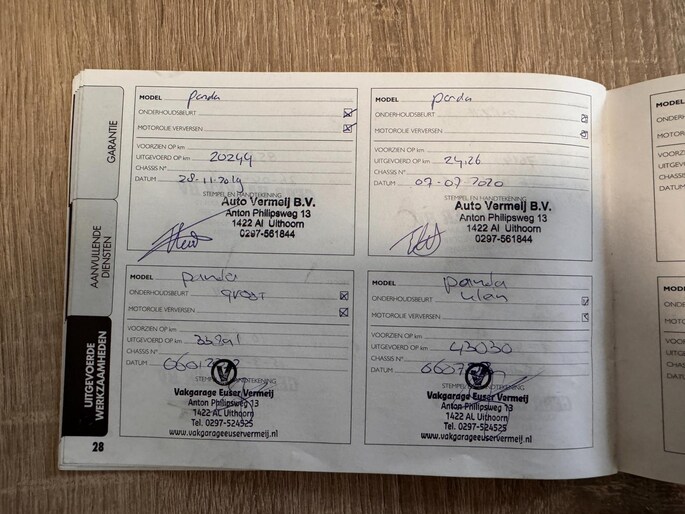 GARANTIE
AANVULLENDE
DIENSTEN
UITGEVOERDE
WERKZAAMHEDEN
28
MODEL panda
ONDERHOUDSBEURT
MOTOROLIE VERVERSEN
VOORZIEN OP km
UITGEVOERD OP km 20244
CHASSIS N°
DATUM 28-11-2019
STEMPEL EN HANDTEKENING
Auto Vermeij B.V.
Anton Philipsweg 13
1422 Al Uithoorn
0297-561844
MODEL panda
ONDERHOUDSBEURT
MOTOROLIE VERVERSEN
VOORZIEN OP km
UITGEVOERD OP km
CHASSIS N°
DATUM 07-07-2020
STEMPEL EN HANDTEKENING
Auto Vermeij B.V.
Anton Philipsweg 13
1422 Al Uithoorn
0297-561844
MODEL panda
ONDERHOUDSBEURT groot
MOTOROLIE VERVERSEN
VOORZIEN OP km
UITGEVOERD OP km
CHASSIS N°
DATUM
STEMPEL EN HANDTEKENING
Vakgarage Euser Vermeij
Anton Philipsweg 13
1422 AL Uithoorn
Tel. 0297-524525
www.vakgarageeuservermeij.nl
MODEL panda
ONDERHOUDSBEURT klein
MOTOROLIE VERVERSEN
VOORZIEN OP km
UITGEVOERD OP km 43030
CHASSIS N°
DATUM
STEMPEL EN HANDTEKENING
Vakgarage Euser Vermeij
Anton Philipsweg 13
1422 AL Uithoorn
Tel. 0297-524525
www.vakgarageeuservermeij.nl
MODEL